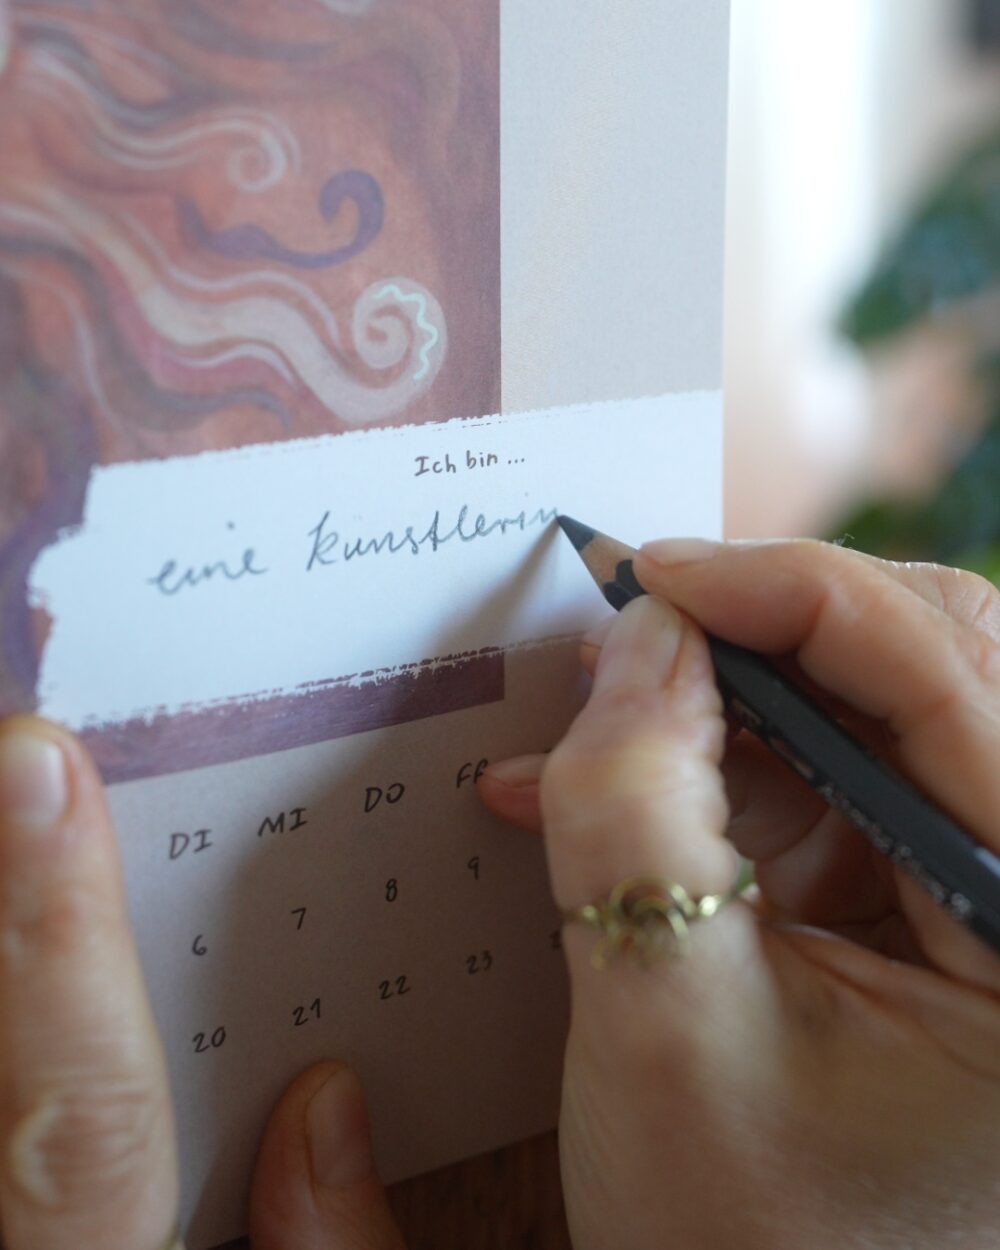 Ich bin ...
eine kunstlerin
DI MI DO FR
6 7 8 9
20 21 22 23